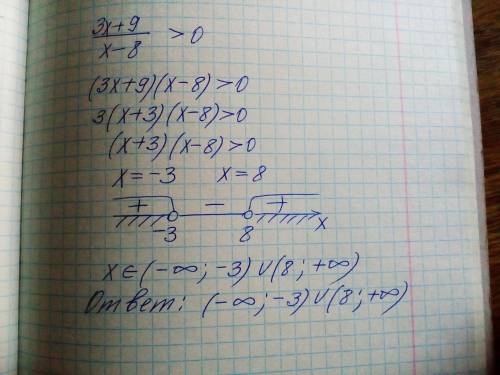 (3x+9)/(x-8) > 0
(3x+9)(x-8)>0
3(x+3)(x-8)>0
(x+3)(x-8)>0
x=-3 x=8
+ - +
-3 8 x
x∈(-∞;-3)∪(8;+∞)
Ответ: (-∞;-3)∪(8;+∞)